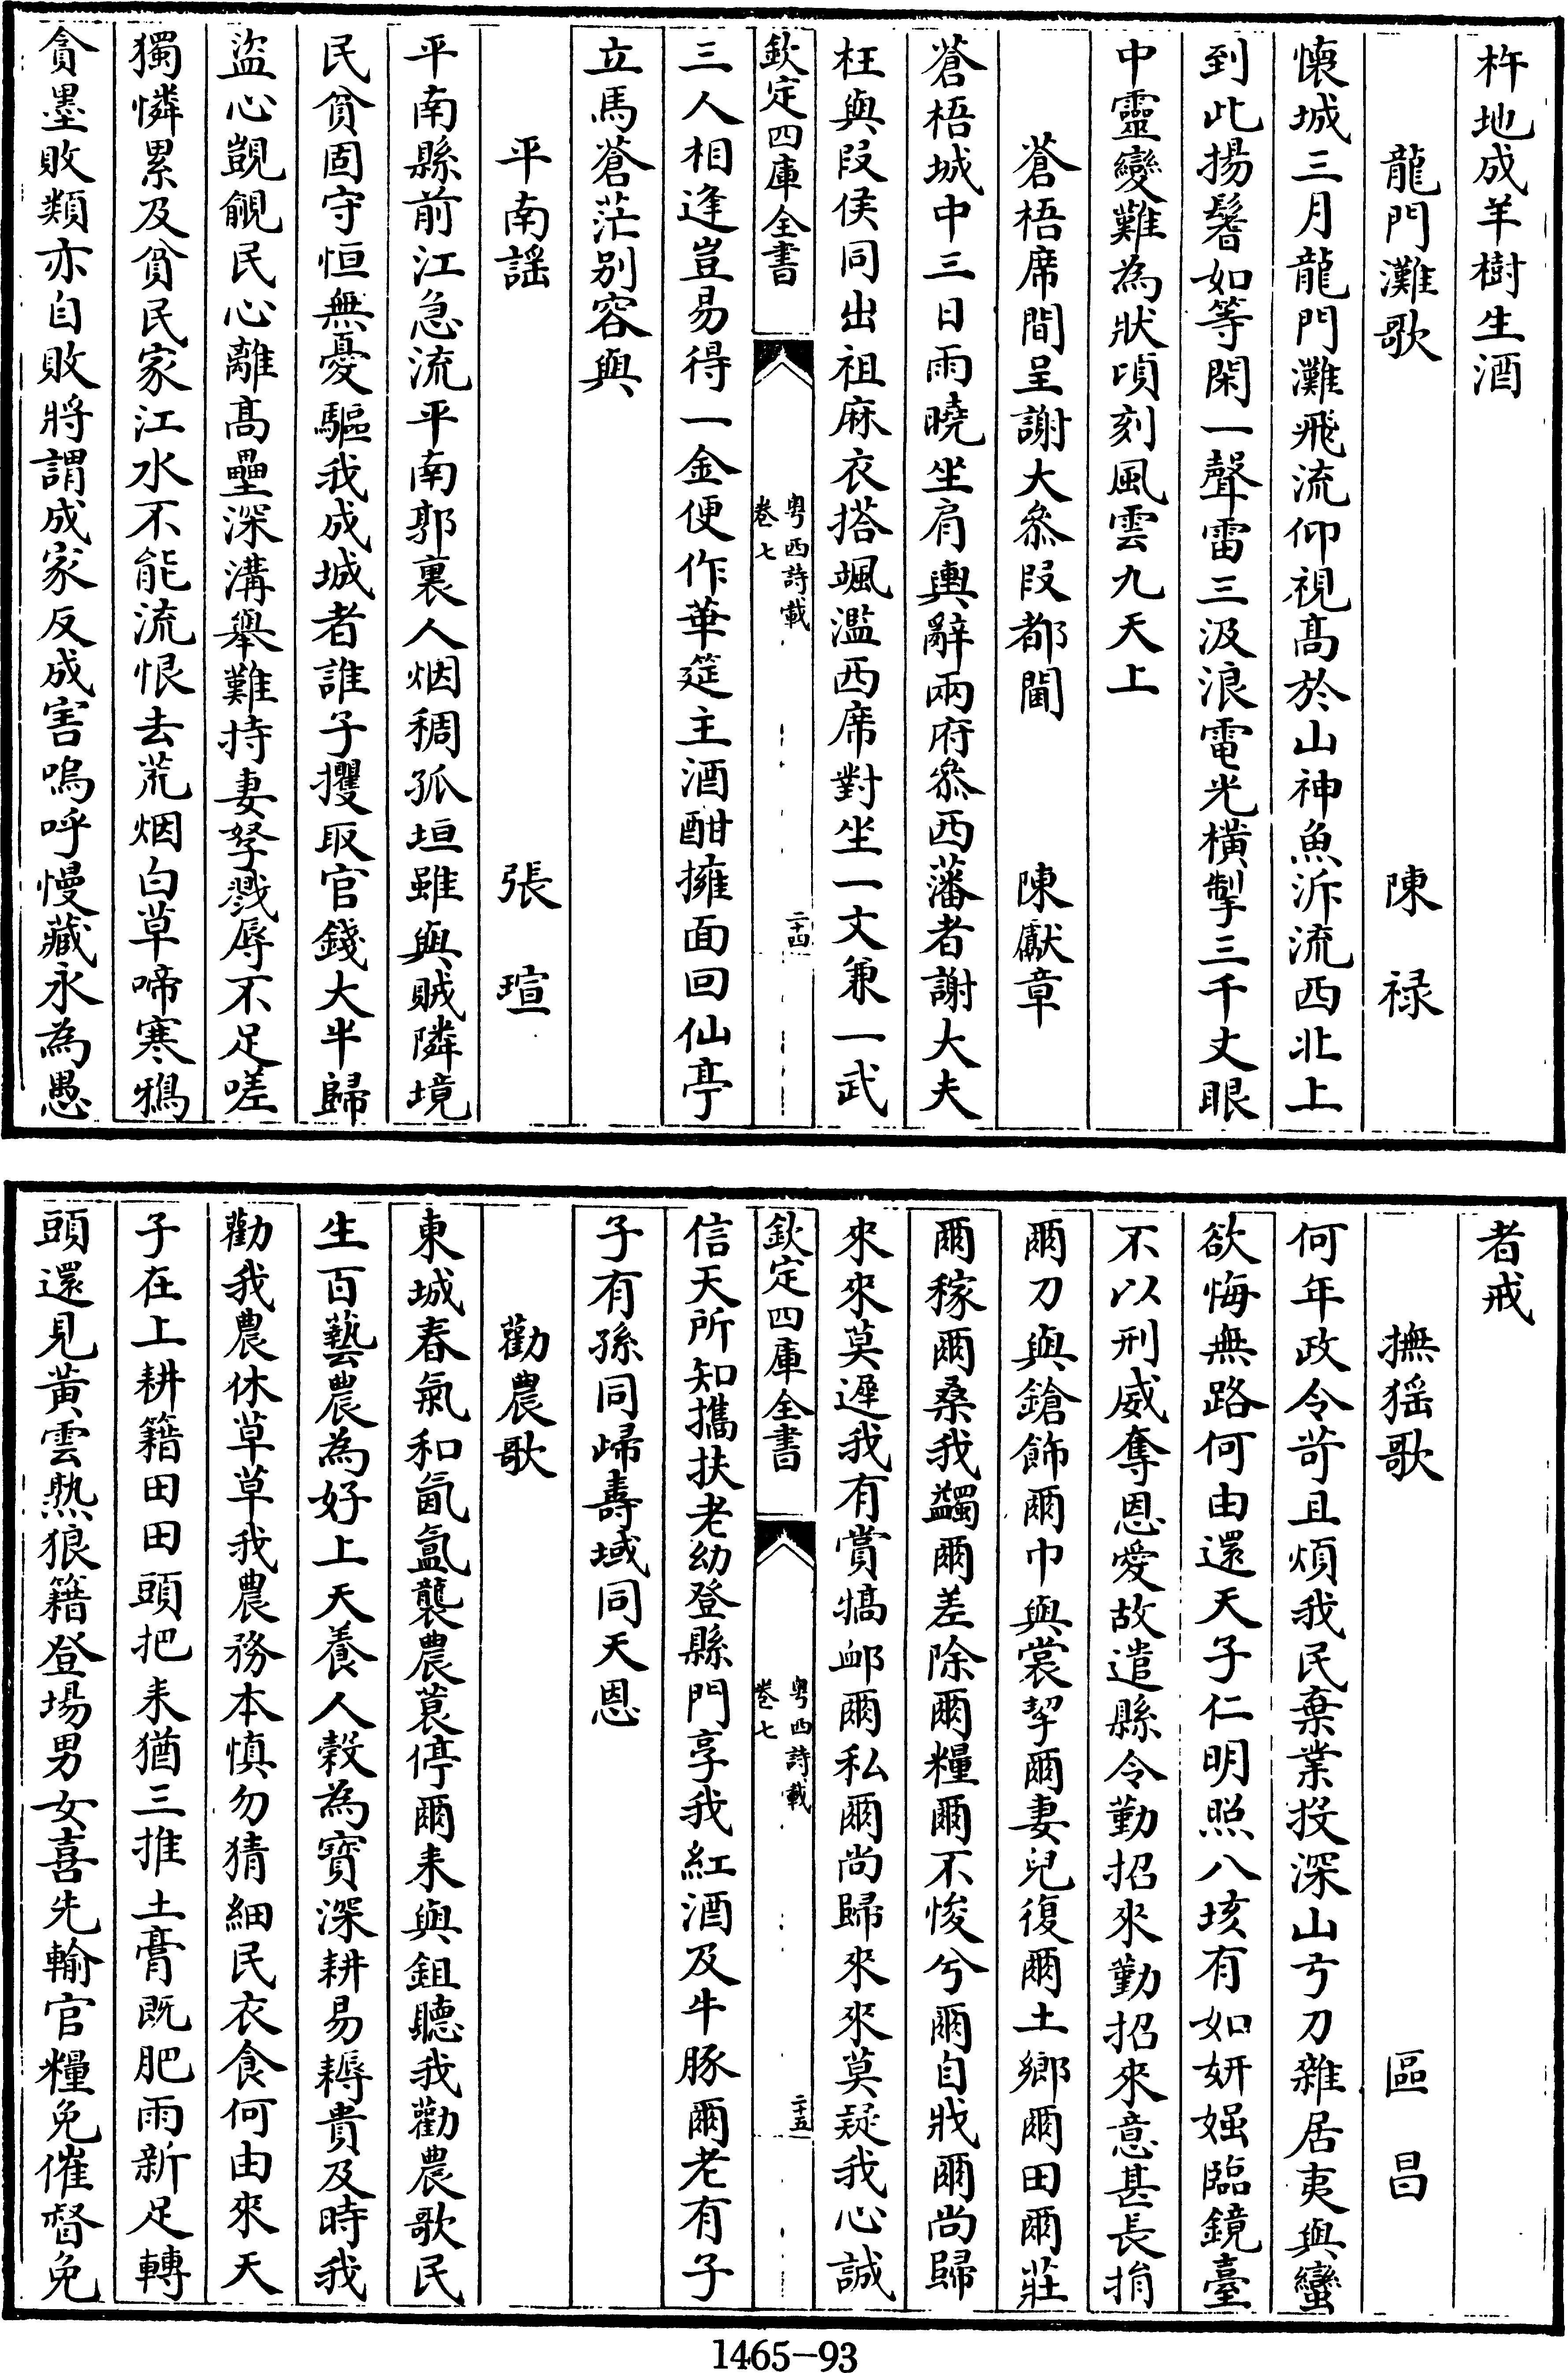 杵地成羊樹生酒
龍門灘歌　陳祿
懷城三月龍門灘飛流仰視髙於山神魚泝流西北上
到此揚鬐如等閑一聲雷三汲浪電光横掣三千丈眼
中靈變難為狀頃刻風雲九天上
蒼梧席間呈謝大叅段都閫　陳獻章
蒼梧城中三日雨曉坐肩輿辭兩府叅西藩者謝大夫
枉與段侯同出祖麻衣搭颯濫西席對坐一文兼一武
欽定四庫全書
粤西詩載
卷七
二十四
三人相逢豈易得一金便作華筵主酒酣擁面回仙亭
立馬蒼茫别容與
平南謡　張瑄
平南縣前江急流平南郭裏人烟稠孤垣雖與賊隣境
民貧固守恒無憂驅我成城者誰子攫取官錢大半歸
盜心覬覦民心離髙壘深溝舉難持妻孥戮辱不足嗟
獨憐累及貧民家江水不能流恨去荒烟白草啼寒鴉
貪墨敗類亦自敗將謂成家反成害嗚呼慢藏永為愚
者戒
撫猺歌　區昌
何年政令苛且煩我民棄業投深山亏刀雜居夷與蠻
欲悔無路何由還天子仁明照八垓有如妍媸臨鏡臺
不以刑威奪恩愛故遣縣令勤招來勤招來意甚長捐
爾刀與鎗飾爾巾與裳挈爾妻兒復爾土鄉爾田爾莊
爾稼爾桑我蠲爾差除爾糧爾不悛兮爾自戕爾尚歸
來來莫遲我有賞犒卹爾私爾尚歸來來莫疑我心誠
欽定四庫全書
粤西詩載
卷七
二十五
信天所知攜扶老幼登縣門享我紅酒及牛豚爾老有子
子有孫同歸壽域同天恩
勸農歌
東城春氣和氤氳襲農蓑停爾耒與鉏聽我勸農歌民
生百藝農為好上天養人穀為寳深耕易耨貴及時我
勸我農休草草我農務本慎勿猜細民衣食何由來天
子在上耕籍田田頭把耒猶三推土膏既肥雨新足轉
頭還見黃雲熟狼籍登場男女喜先輸官糧免催督免
1465-93